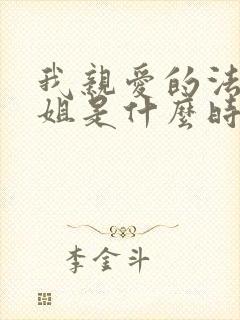 我親愛的法
姐是什麼時
李金斗